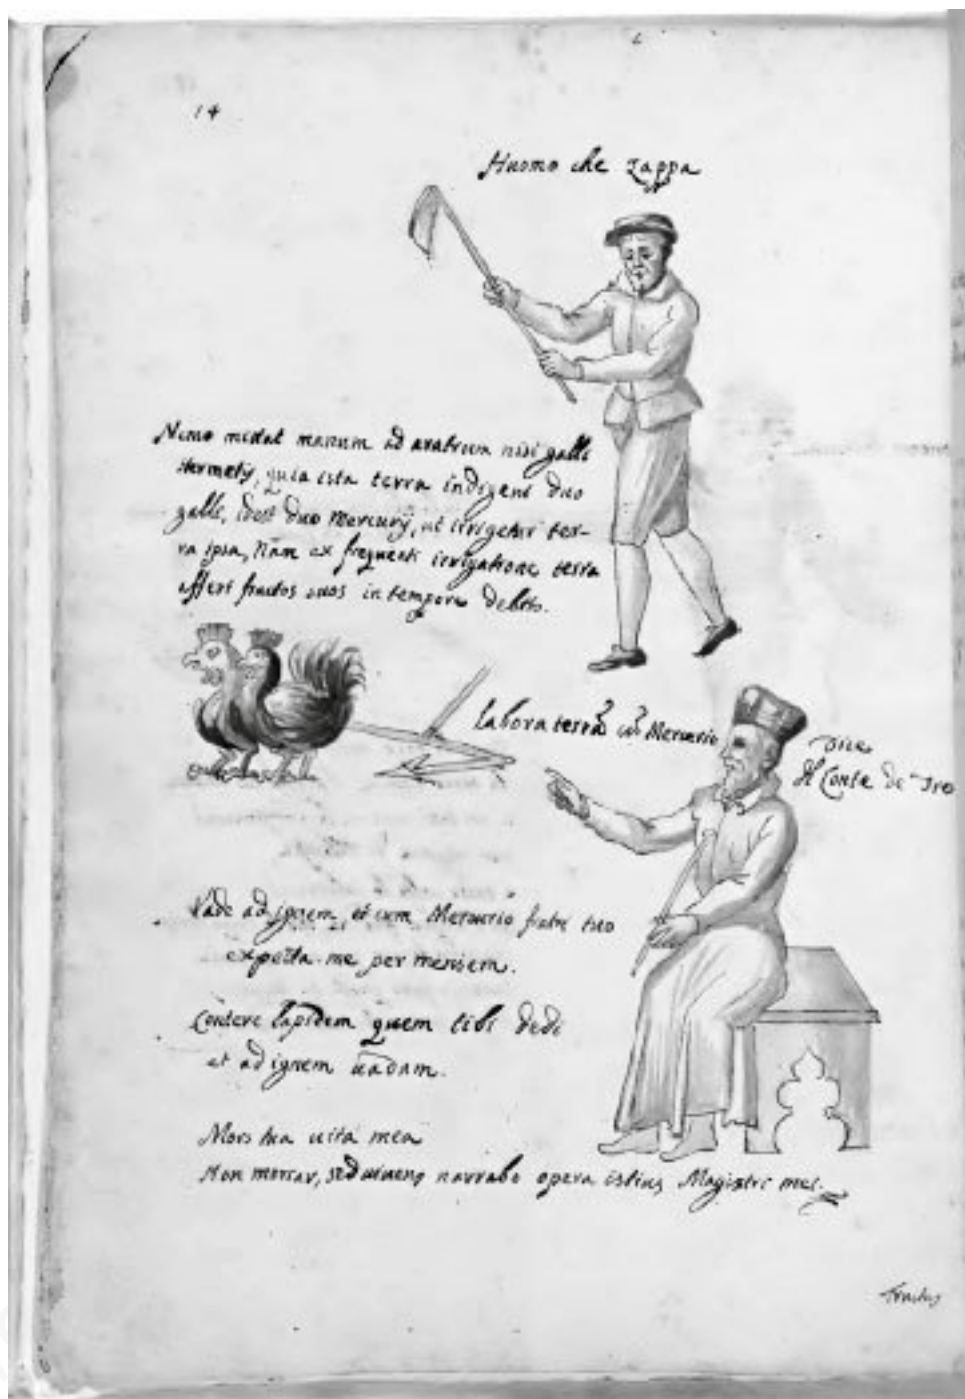 14
Huomo che zappa
Nemo mittat manum ad aratrum nisi galli
Hermetis, quia ista terra indigent duo
galli, idest duo Mercurij, ut irrigetur ter-
ra ipsa, Nam ex frequenti irrigatione terra
affert fructus suos in tempore debito.
labora terrã cũ Mercurio
dice
il Conte de
Vade ad ignem, et cum Mercurio fratre tuo
expecta me per mensem.
Contere lapidem quem tibi dedi
et ad ignem vadam.
Mors tua uita mea
Non moriar, sed uiuens narrabo opera istius Magistri mei.